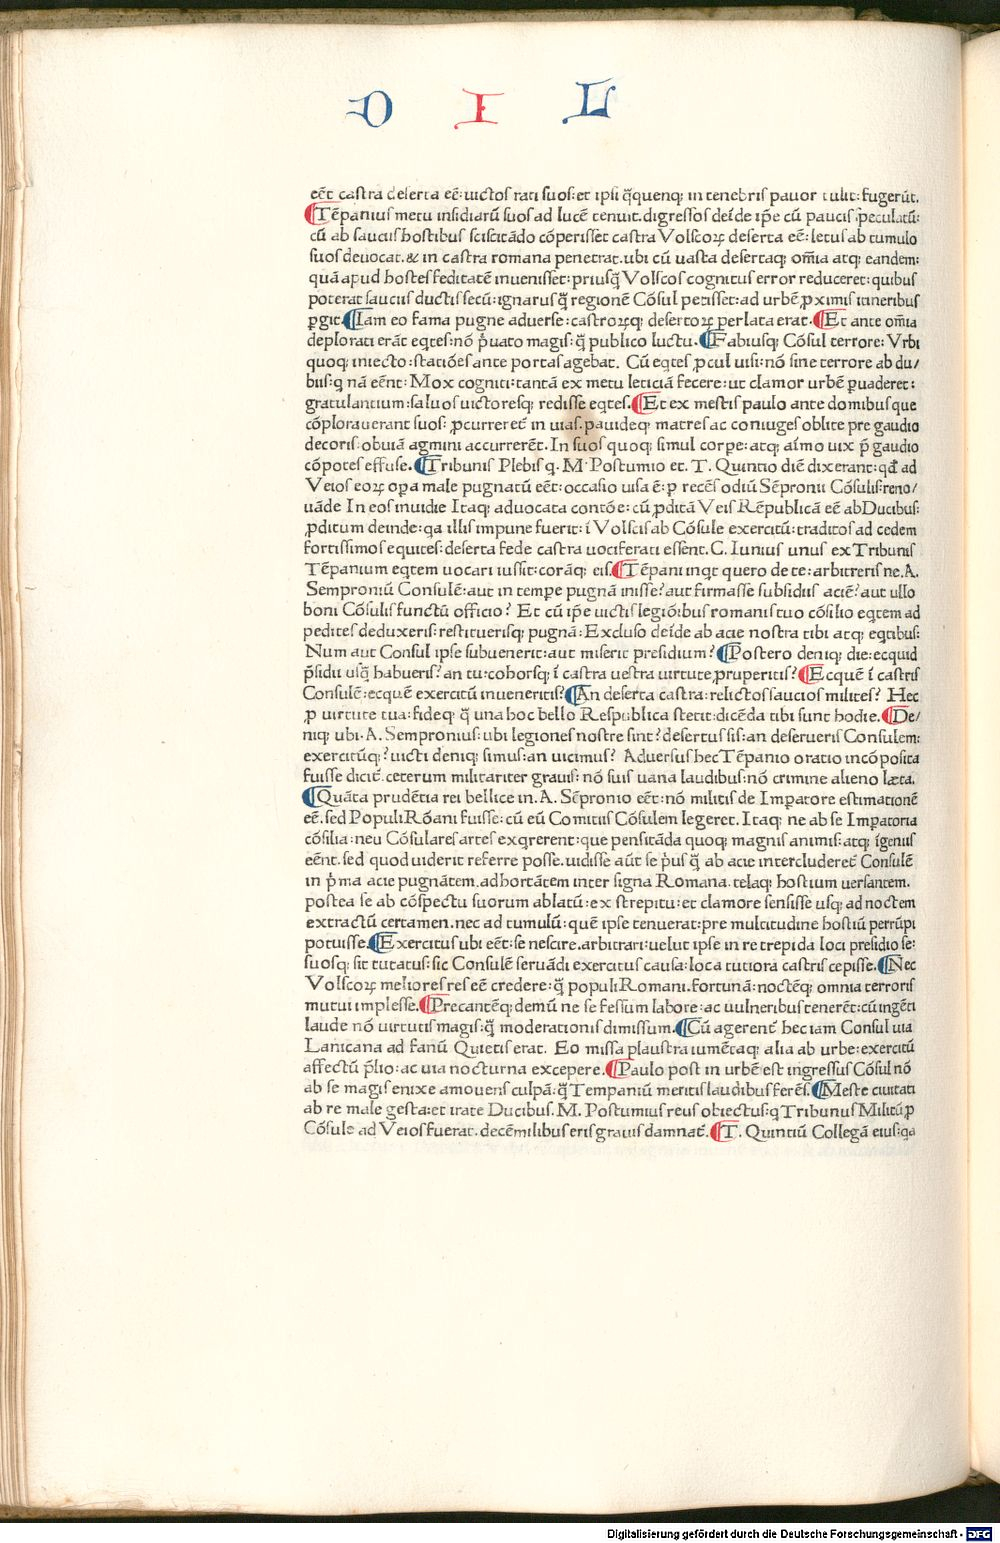 D I L
eēt castra deserta eē: uictos rati suos: et ipsi q̄quenq; in tenebris pauor tulit: fugerūt.
¶Tēpanius metu insidiarū suos ad lucē tenuit. digressos deīde ip̄e cū paucis speculatū:
cū ab sauciis hostibus sciscitādo cōperisset castra Volscoꝝ deserta eē: letus ab tumulo
suos deuocat. & in castra romana penetrat. ubi cū uasta desertaq; om̄ia atq; eandem:
quā apud hostes feditatē inuenisset: priusq̄ Volscos cognitus error reduceret: quibus
poterat sauciis ductis secū: ignarus q̄ regionē Cōsul petisset: ad urbē ꝓximis itineribus
ꝑgit. ¶Iam eo fama pugne aduerse: castroꝝq; desertoꝝ perlata erat. ¶Et ante om̄ia
deplorati erāt eqtes: nō p̄uato magis: q̄ publico luctu. ¶Fabiusq; Cōsul terrore: Vrbi
quoq; iniecto: statiōes ante portas agebat. Cū eqtes ꝓcul uisi: nō sine terrore ab du/
biis: q nā eēnt: Mox cogniti: tantā ex metu leticiā fecere: ut clamor urbē ꝑuaderet:
gratulantium: saluos uictoresq; redisse eqtes. ¶Et ex mestis paulo ante domibus que
cōplorauerant suos: ꝓcurreret̄ in uias. pauideq; matres ac coniuges oblite pre gaudio
decoris: obuiā agmini accurrerēt. In suos quoq; simul corꝑe: atq; aīmo uix p̄ gaudio
cōpotes effuse. ¶Tribunis Plebis q. M. Postumio et. T. Quintio diē dixerant: qd̄ ad
Veios eoꝝ oꝑa male pugnatū eēt: occasio uisa ē: ꝑ recēs odiū Sēpronii Cōsulis: reno/
uāde In eos inuidie Itaq; aduocata contōe: cū ꝓditā Veis Rēpublicā eē ab Ducibus:
ꝓditum deinde: qa illis impune fuerit: ī Volscis ab Cōsule exercitū: traditos ad cedem
fortissimos equites: deserta fede castra uociferati essent. C. Iunius unus ex Tribunis
Tēpanium eqtem uocari iussit: corāq; eis. ¶Tēpani inqt quero de te: arbitreris ne. A.
Semproniū Consulē: aut in temꝑe pugnā inisse? aut firmasse subsidiis aciē? aut ullo
boni Cōsulis functū officio? Et cū ip̄e uictis legiōibus romanis tuo cōsilio eqtem ad
pedites deduxeris: restituerisq; pugnā: Excluso deīde ab acie nostra tibi atq; eqtibus:
Num aut Consul ipse subuenerit: aut miserit presidium? ¶Postero deniq; die: ecquid
p̄sidii usq̄ habueris? an tu: cohorsq; ī castra uestra uirtute ꝓruperitis? ¶Ecquē ī castris
Consulē: ecquē exercitū inueneritis? ¶An deserta castra: relictos saucios milites? Hec
ꝓ uirtute tua: fideq; q̄ una hoc bello Respublica stetit: dicēda tibi sunt hodie. ¶De/
niq; ubi. A. Sempronius: ubi legiones nostre sint? desertus sis: an deserueris Consulem:
exercitūq;? uicti deniq; simus: an uicimus? Aduersus hec Tēpanio oratio incōposita
fuisse dicit̄. ceterum militariter grauis: nō suis uana laudibus: nō crimine alieno læta.
¶Quāta prudētia rei bellice in. A. Sēpronio eēt: nō militis de Imꝑatore estimationē
eē. sed Populi Rōani fuisse: cū eū Comitiis Cōsulem legeret. Itaq; ne ab se Imꝑatoria
cōsilia: neu Cōsulares artes exqrerent: que pensitāda quoq; magnis animis: atq; īgeniis
eēnt. sed quod uiderit referre posse. uidisse aūt se p̄us q̄ ab acie intercluderet̄ Consulē
in p̄ma acie pugnātem. adhortātem inter signa Romana. telaq; hostium uersantem.
postea se ab cōspectu suorum ablatū: ex strepitu: et clamore sensisse usq; ad noctem
extractū certamen. nec ad tumulū: quē ipse tenuerat: pre multitudine hostiū perrūpi
potuisse. ¶Exercitus ubi eēt: se nescire. arbitrari: uelut ipse in re trepida loci presidio se:
suosq; sit tutatus: sic Consulē seruādi exercitus causa: loca tutiora castris cepisse. ¶Nec
Volscoꝝ meliores res eē credere: q̄ populi Romani. fortunā: noctēq; omnia terroris
mutui implesse. ¶Precantēq; demū ne se fessum labore: ac uulneribus tenerēt: cū ingēti
laude nō uirtutis magis: q̄ moderationis dimissum. ¶Cū agerent̄ hec iam Consul uia
Lauicana ad fanū Quietis erat. Eo missa plaustra iumētaq; alia ab urbe: exercitū
affectū p̄lio: ac uia nocturna excepere. ¶Paulo post in urbē est ingressus Cōsul nō
ab se magis enixe amouens culpā: q̄ Tempaniū meritis laudibus ferēs. ¶Meste ciuitati
ab re male gesta: et irate Ducibus. M. Postumius reus obiectus: q Tribunus Militū ꝓ
Cōsule ad Veios fuerat. decēmilibus eris grauis damnat̄. ¶T. Quintiū Collegā eius: qa
Digitalisierung gefördert durch die Deutsche Forschungsgemeinschaft - DFG